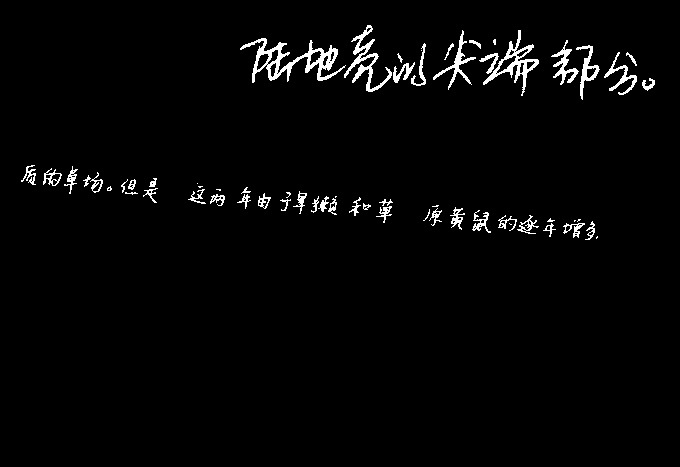 陆地亮的尖端部分。
质的草场。但是 这两年由于旱獭和草 原黄鼠的逐年增多